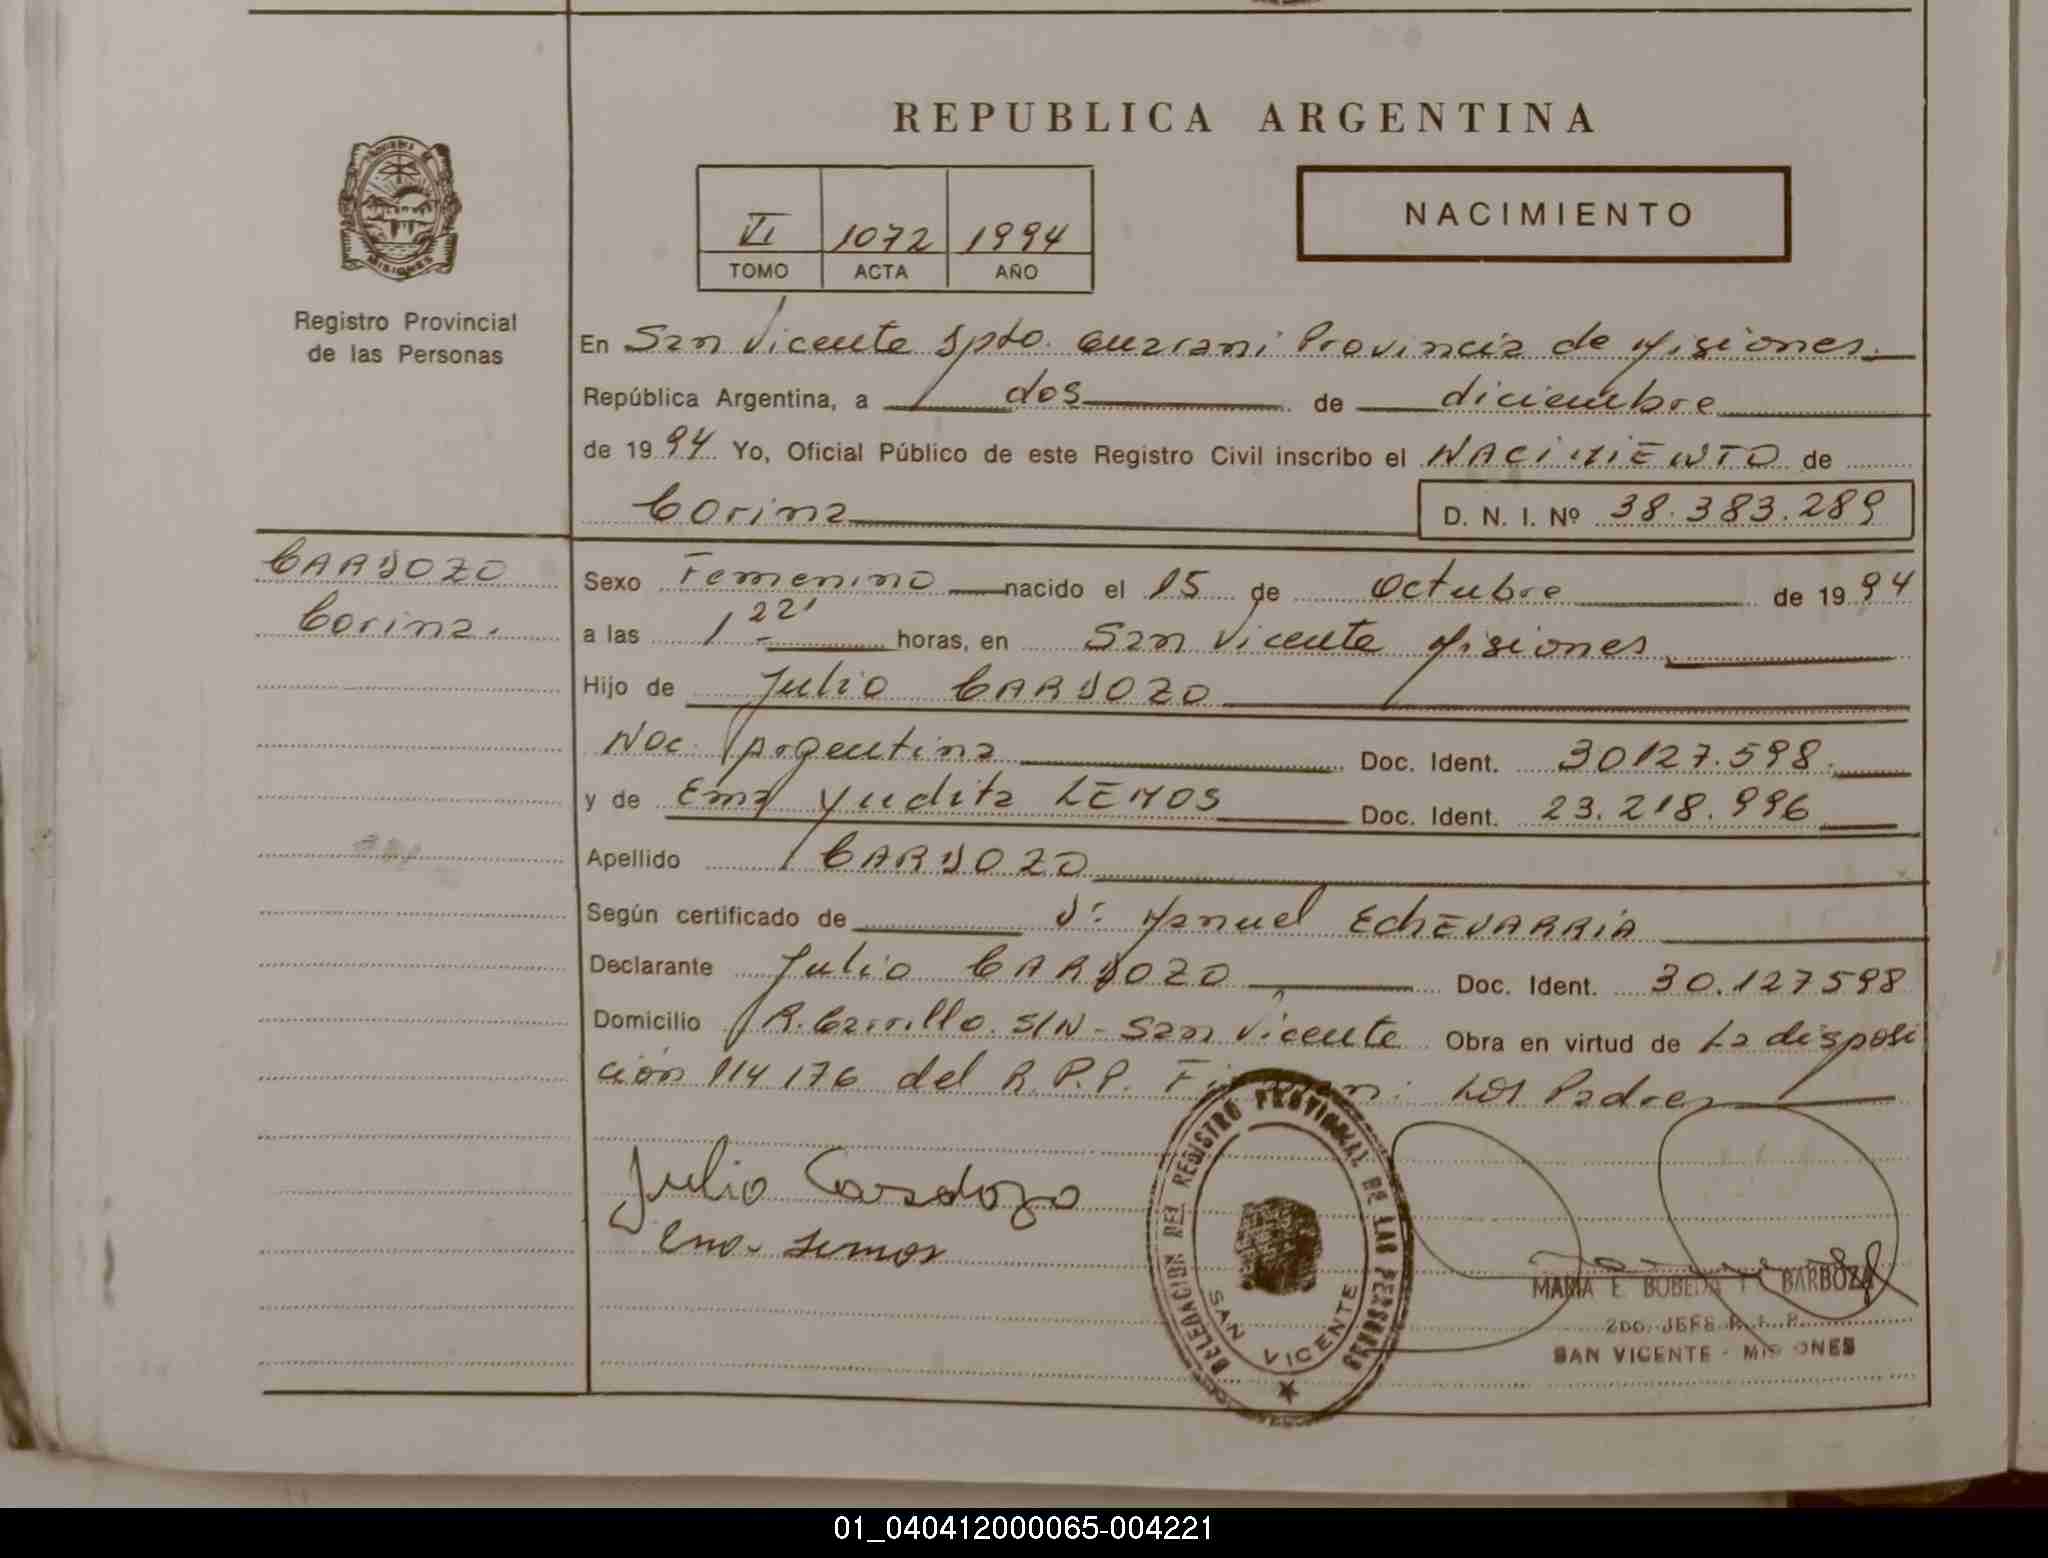 REPUBLICA ARGENTINA
VI 1072 1994
TOMO ACTA AÑO
NACIMIENTO
MISIONES
Registro Provincial
de las Personas
En San Vicente Dpto. Guarani Provincia de Misiones.
República Argentina, a dos de diciembre
de 1994 Yo, Oficial Público de este Registro Civil inscribo el NACIMIENTO de
Corina D. N. I. Nº 38.383.289
CARDOZO
Corina.
Sexo Femenino nacido el 15 de Octubre de 1994
a las 1 22' horas, en San Vicente Misiones
Hijo de Julio CARDOZO
Nac. Argentina Doc. Ident. 30127.598.
y de Ema Yudita LEMOS Doc. Ident. 23.218.996
Apellido CARDOZO
Según certificado de Dr. Manuel EchEVARRIA
Declarante Julio CARDOZO Doc. Ident. 30.127598
Domicilio R. Carrillo. S/N - San Vicente Obra en virtud de La disposi
ción 114176 del R.P.P. Los Padres
Julio Cardozo
Ema Lemos
DELEGACION DEL REGISTRO PROVINCIAL DE LAS PERSONAS
SAN VICENTE
MARIA E. BOBEDA BARBOZA
2DO. JEFE R. P. P.
SAN VICENTE - MISIONES
01_040412000065-004221